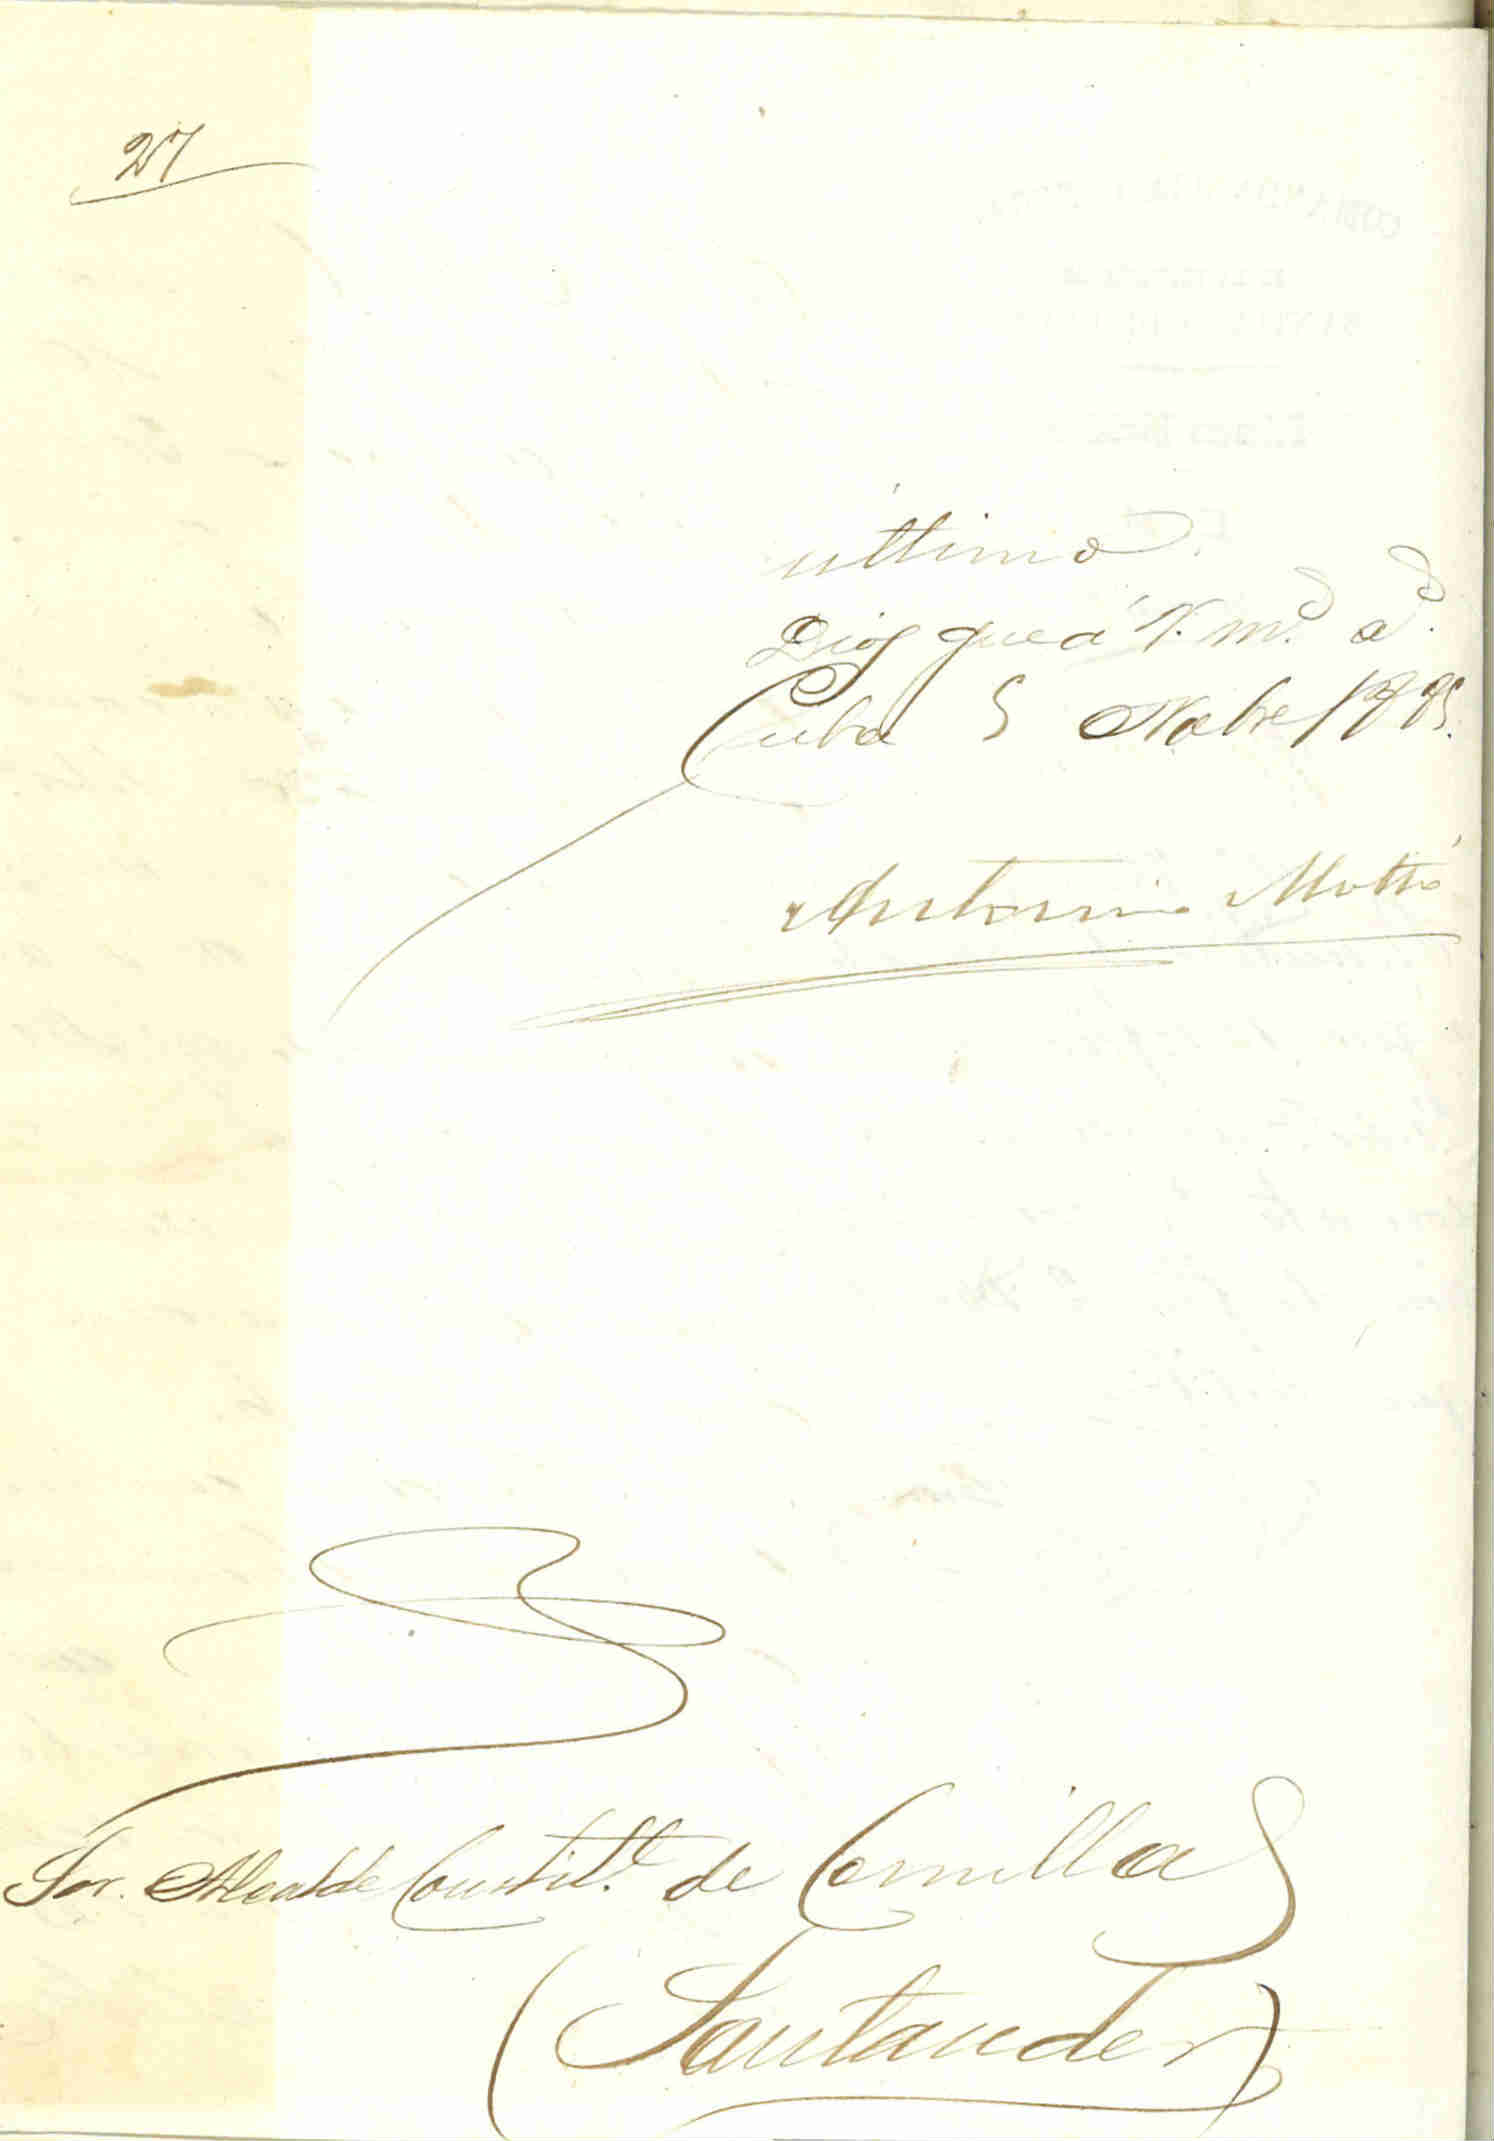 27
último.
Dios gue á V. ms. as.
Cuba 5 Nobre 1885.
Antonio Moltó
Sor. Alcalde Constitl. de Comillas
(Santander)